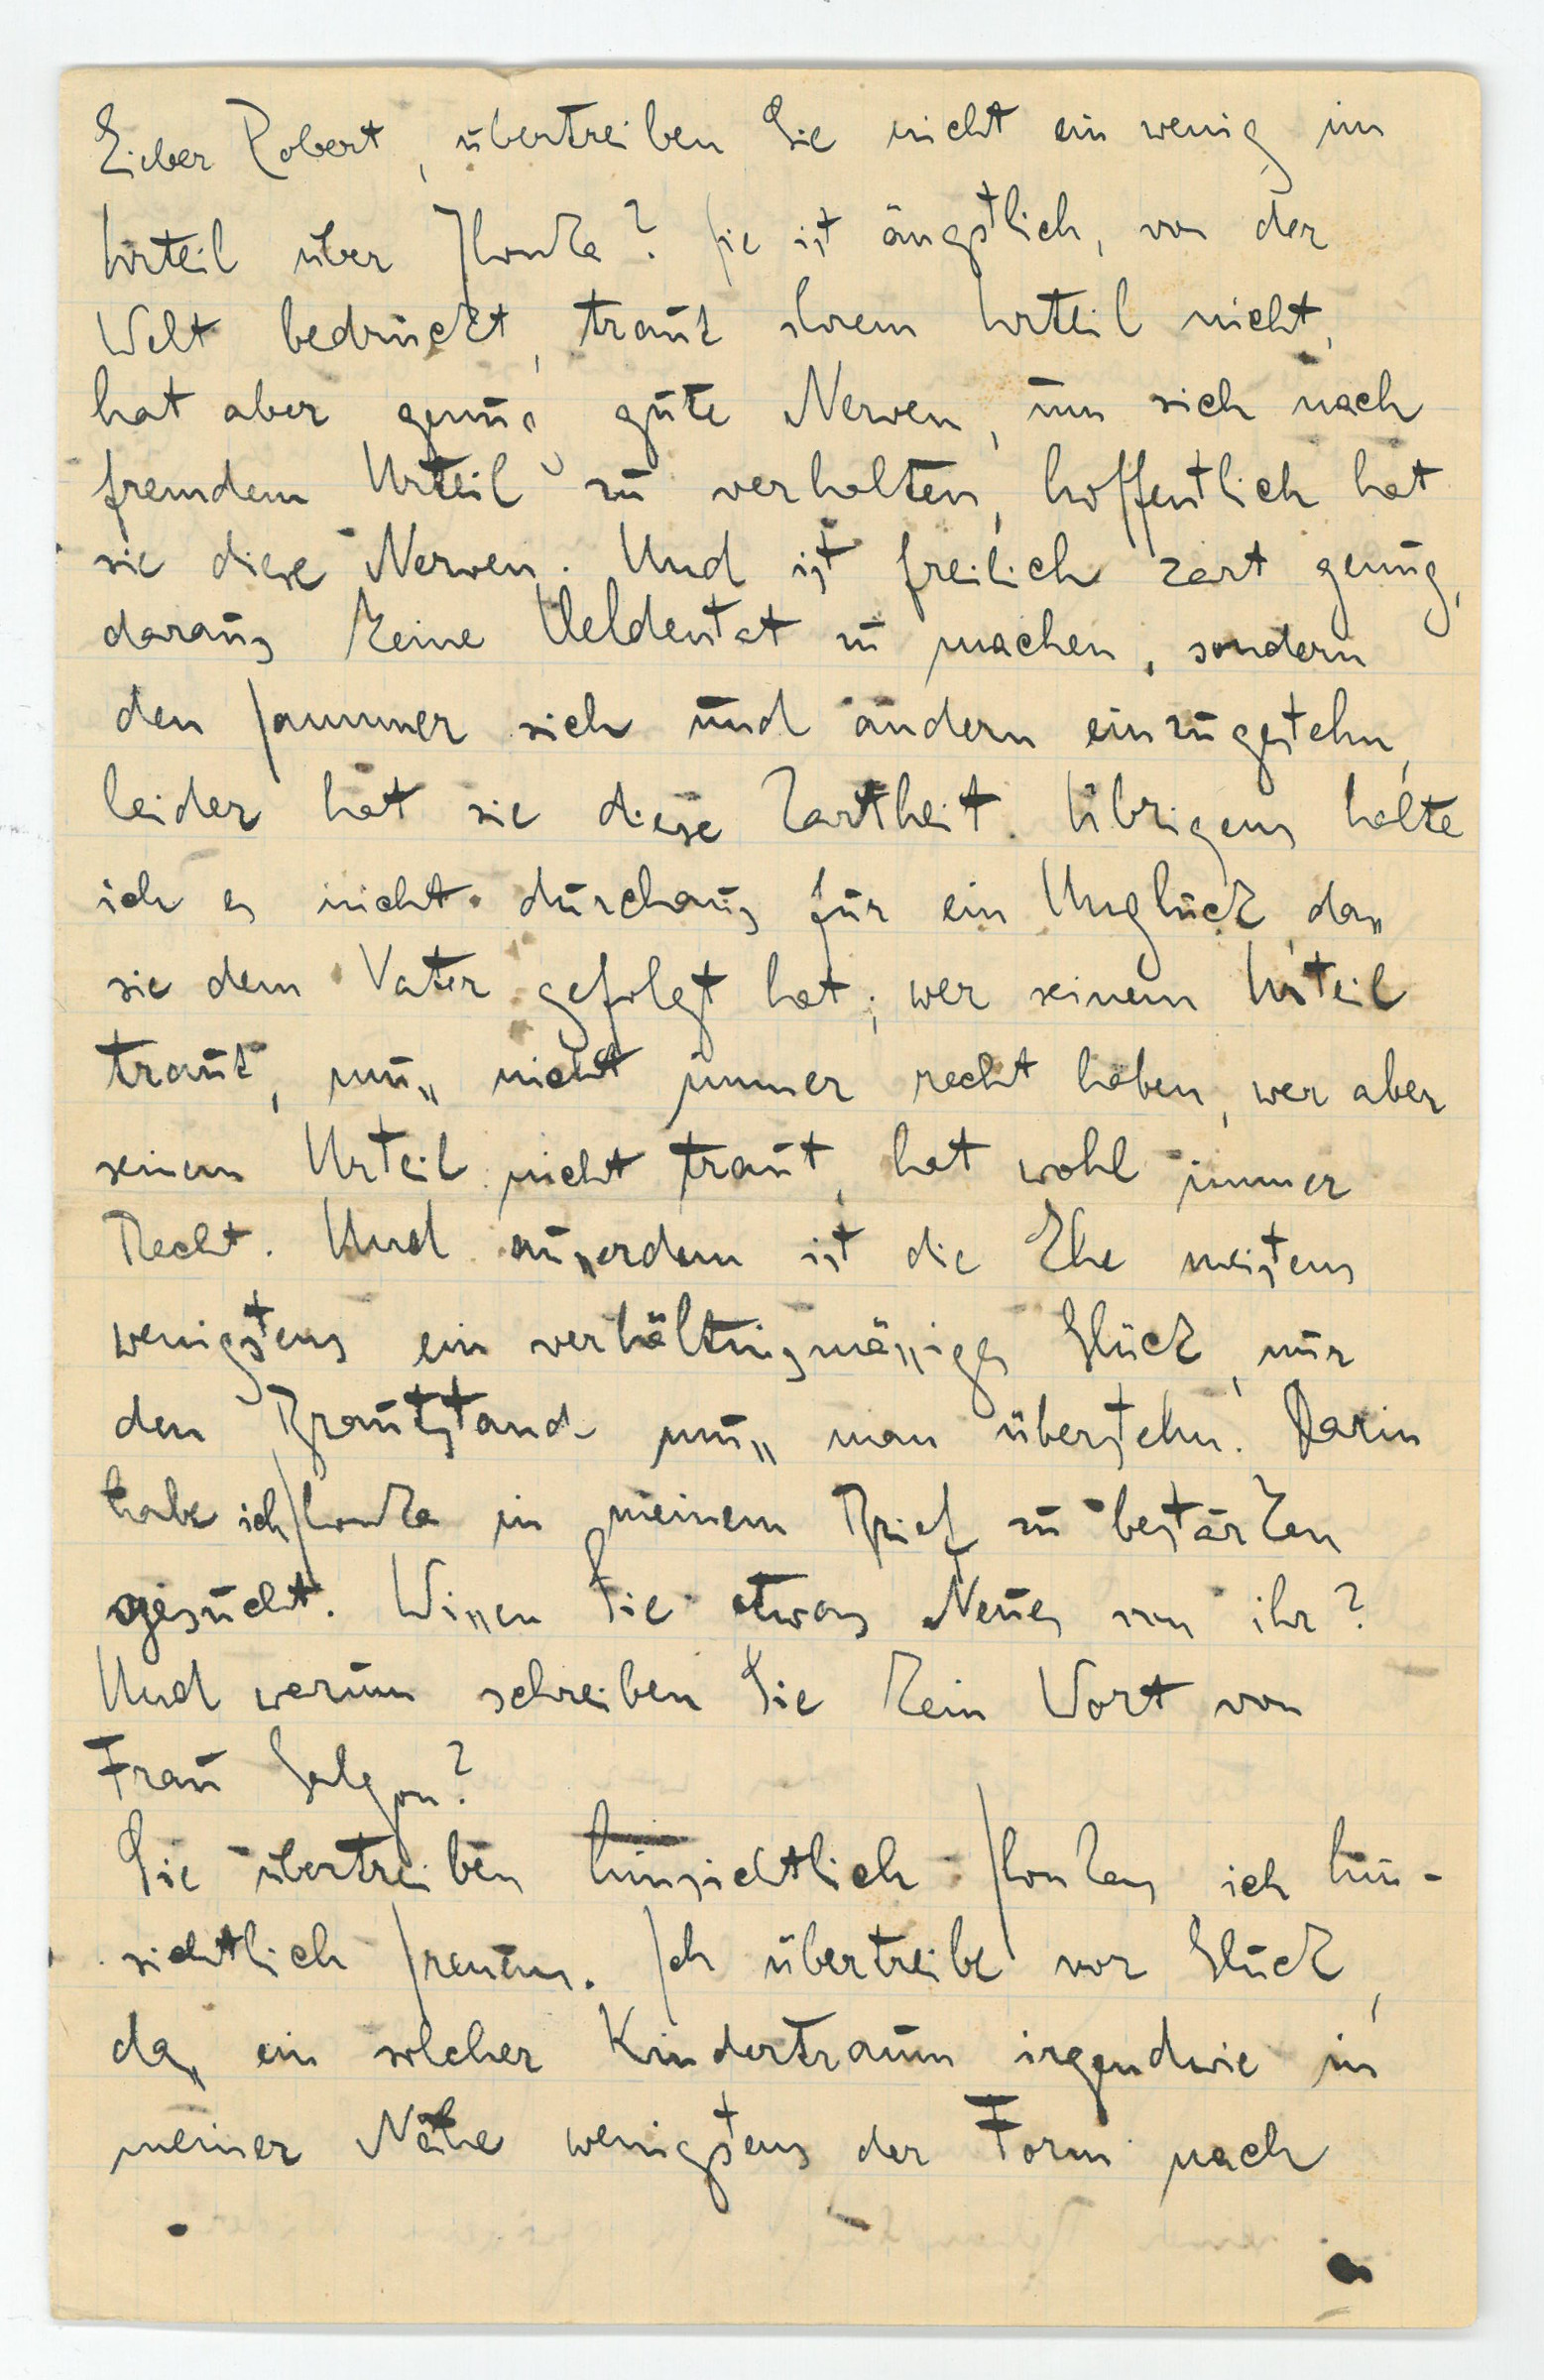 Lieber Robert, übertreiben Sie nicht ein wenig im
Urteil über Ilonka? Sie ist ängstlich, von der
Welt bedrückt, traut ihrem Urteil nicht,
hat aber genug gute Nerven, um sich nach
fremdem Urteil zu verhalten, hoffentlich hat
sie diese Nerven. Und ist freilich zart genug,
daraus keine Heldentat zu machen, sondern
den Jammer sich und andern einzugestehn,
leider hat sie diese Zartheit. Übrigens halte
ich es nicht durchaus für ein Unglück dass
sie dem Vater gefolgt hat; wer seinem Urteil
traut, muss nicht immer recht haben, wer aber
seinem Urteil nicht traut, hat wohl immer
Recht. Und ausserdem ist die Ehe meistens
wenigstens ein verhältnismässiges Glück, nur
den Brautstand muss man überstehn. Darin
habe ich Ilonka in meinem Brief zu bestärken
gesucht. Wissen Sie etwas Neues von ihr?
Und warum schreiben Sie kein Wort von
Frau Galgon?
Sie übertreiben hinsichtlich Ilonkas, ich hin-
sichtlich Irenens. Ich übertreibe vor Glück,
dass ein solcher Kindertraum irgendwie in
meiner Nähe wenigstens der Form nach